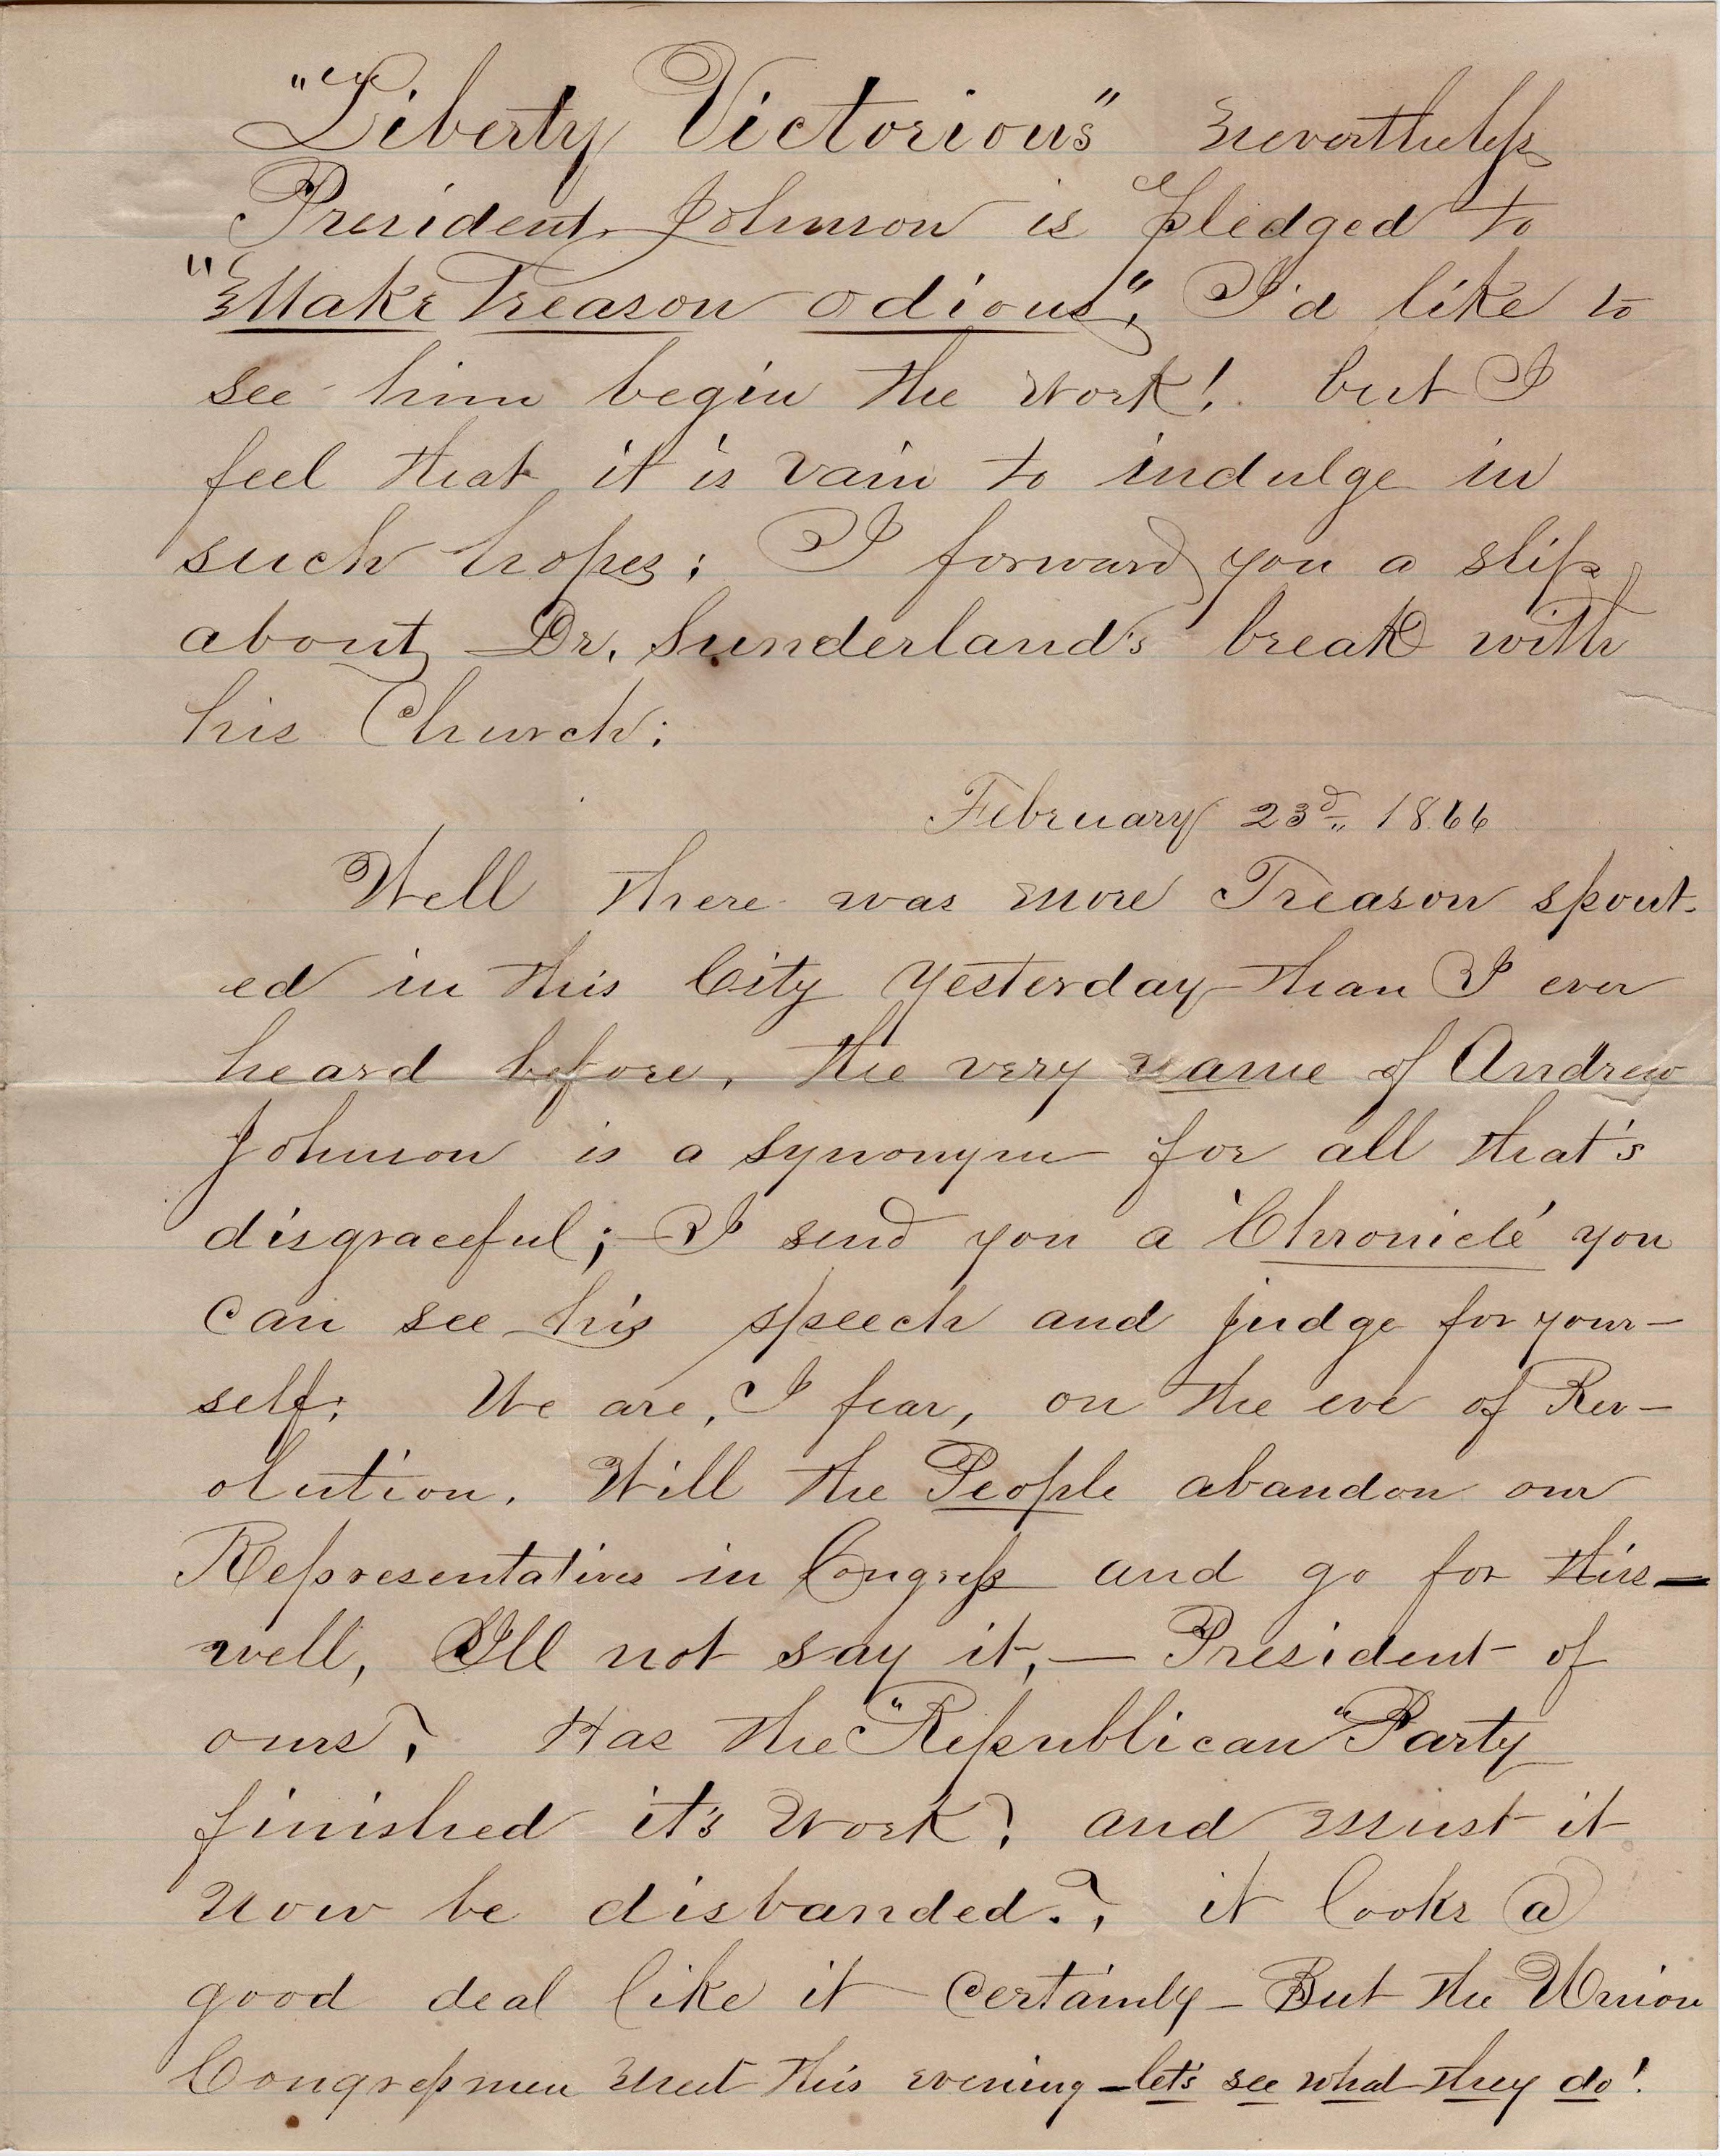 "Liberty Victorious" nevertheless
President Johnson is pledged to
"Make Treason odious". I'd like to
see him begin the work! but I
feel that it is vain to indulge in
such hopes; I forward you a slip
about Dr. Sunderland's break with
his Church;
February 23d. 1866
Well there was more Treason spout-
ed in this City yesterday than I ever
heard before, the very name of Andrew
Johnson is a synonym for all that's
disgraceful; I send you a 'Chronicle' you
can see his speech and judge for your-
self; We are, I fear, on the eve of Rev-
olution. Will the People abandon our
Representatives in Congress and go for this—
well, I'll not say it,— President of
ours? Has the "Republican" Party
finished it's work? and must it
now be disbanded.? it looks a
good deal like it certainly – But the Union
Congressmen meet this evening – let's see what they do!